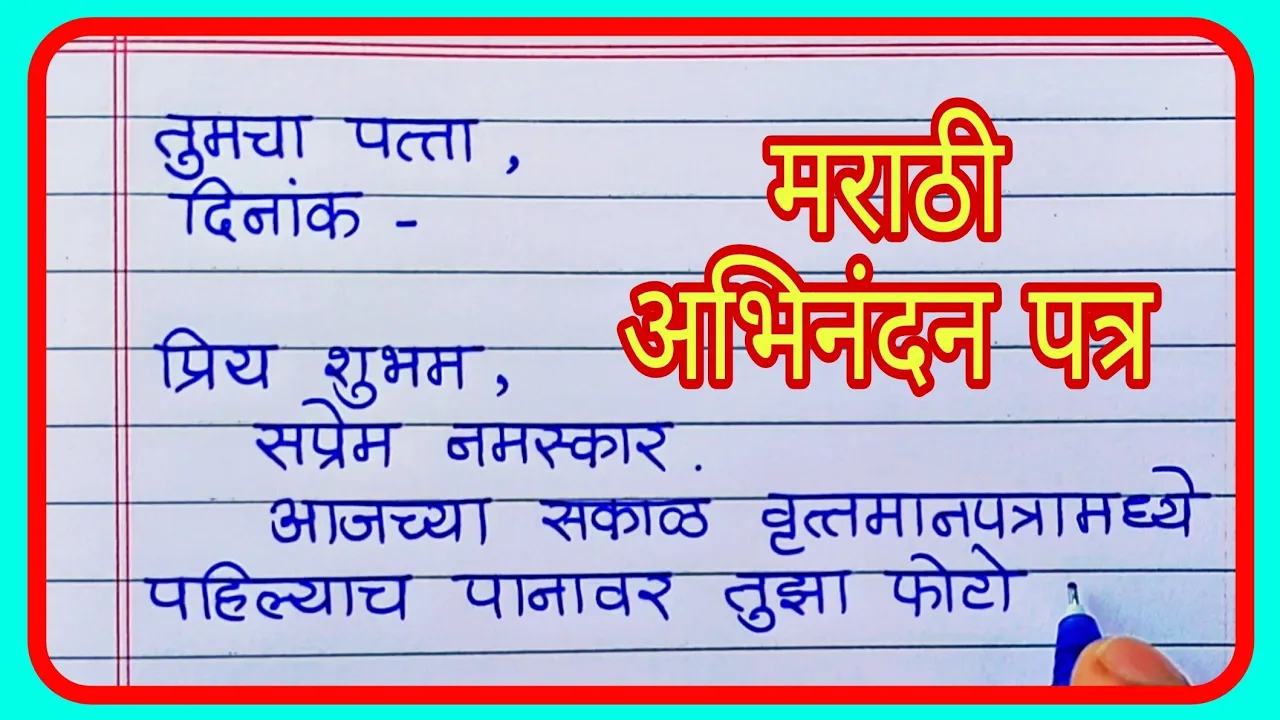 तुमचा पत्ता ,
दिनांक -
मराठी
अभिनंदन पत्र
प्रिय शुभम ,
सप्रेम नमस्कार .
आजच्या सकाळ वृत्तमानपत्रामध्ये
पहिल्याच पानावर तुझा फोटो